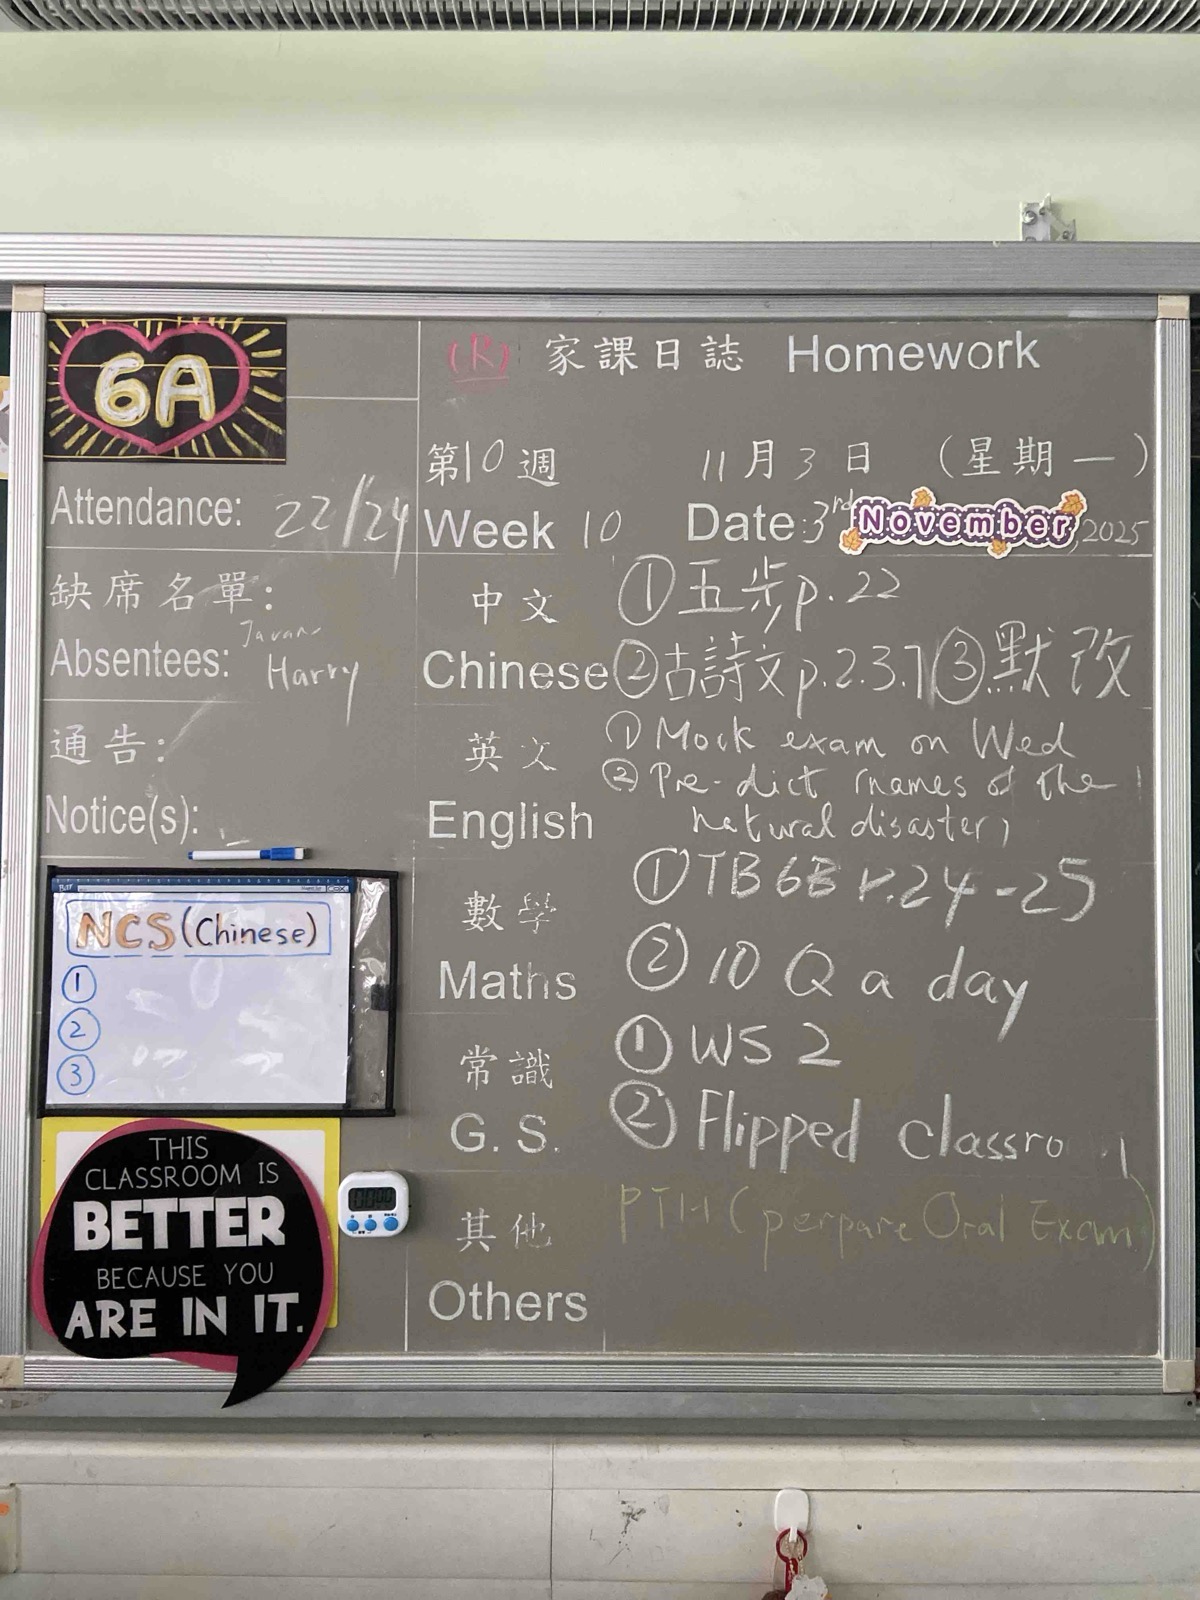 6A
Attendance: 22/24
缺席名單:
Absentees: Harry
通告:
Notice(s):
NCS (Chinese)
①
②
③
THIS
CLASSROOM IS
BETTER
BECAUSE YOU
ARE IN IT.
(R) 家課日誌 Homework
第10週 11月3日 (星期一)
Week 10 Date: 3rd November, 2025
中文 ①五步p.22
Chinese ②古詩文p.2.3.7 ③默改
英文 ① Mock exam on Wed
② Pre-dict (names of the
English natural disaster)
數學 ①TB 6B P.24-25
Maths ② 10 Q a day
常識 ① WS 2
G. S. ② Flipped classro
其他 PTH (perpare Oral Exam)
Others